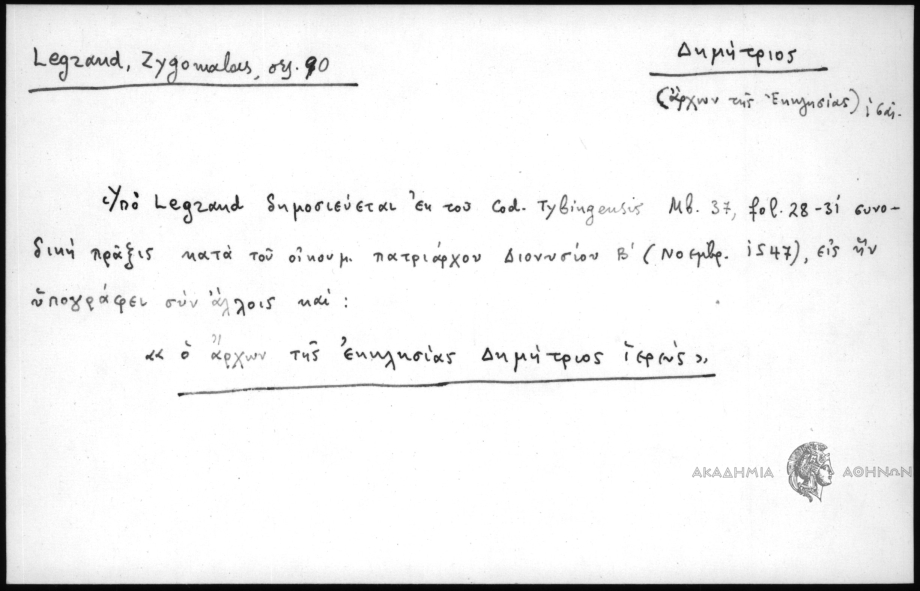 Legrand, Zygomalas, σελ. 90
Δημήτριος
(ἄρχων τῆς Ἐκκλησίας)
Ὑπὸ Legrand δημοσιεύεται ἐκ τοῦ Cod. Tybingensis Mb. 37, fol. 28-31 συνο-
δικὴ πρᾶξις κατὰ τοῦ οἰκουμ. πατριάρχου Διονυσίου Β' (Νοεμβρ. 1547), εἰς ἣν
ὑπογράφει σὺν ἄλλοις καί:
«« ὁ ἄρχων τῆς Ἐκκλησίας Δημήτριος ἱερεὺς».
ΑΚΑΔΗΜΙΑ ΑΘΗΝΩΝ